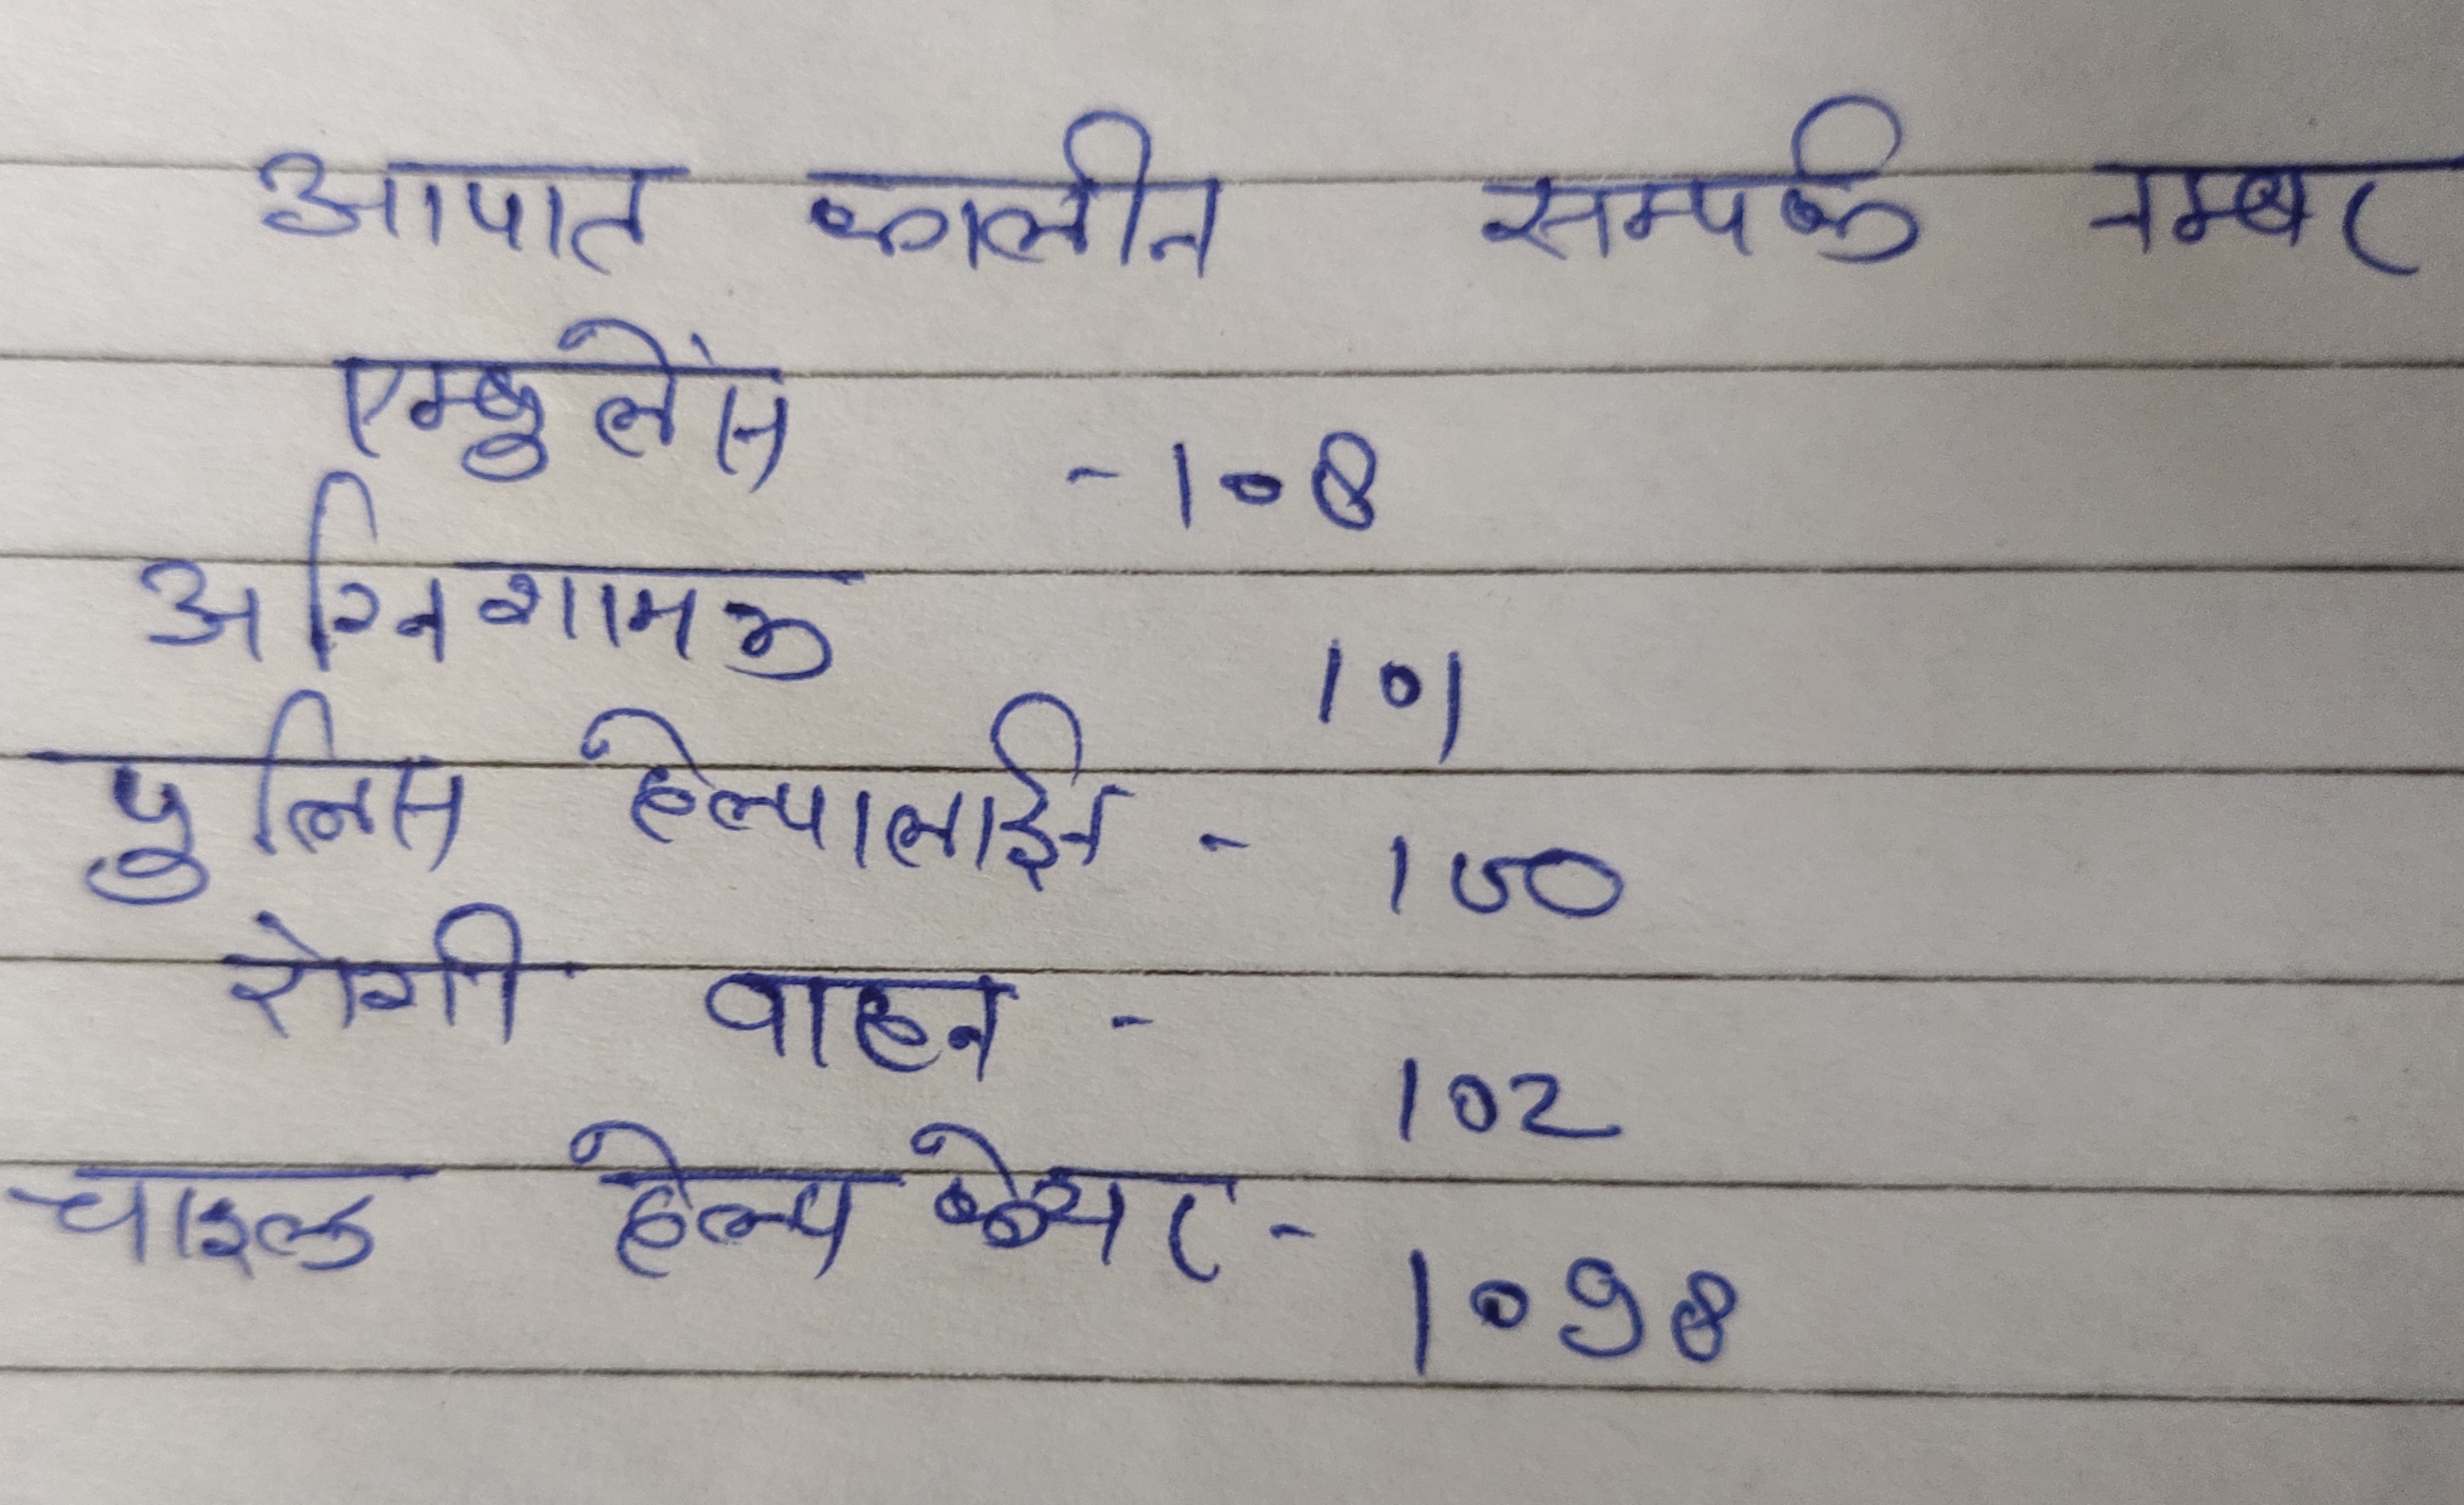 आपात कालीन सम्पर्क नम्बर
एम्बुलेंस - 108
अग्निशामक 101
पुलिस हेल्पालाईन - 100
रोगी वाहन - 102
चाइल्ड हेल्प केयर - 1098